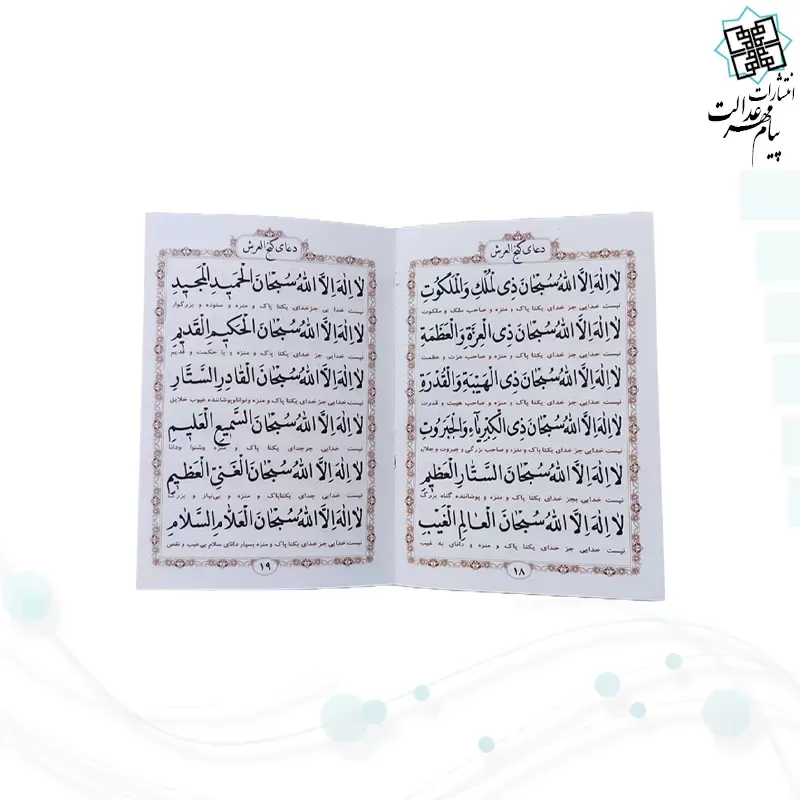 انتشارات
پیام مهر عدالت
دعای گنج العرش
لا اِلٰهَ اِلَّا اللهُ سُبْحَانَ ذِی الْمُلْكِ وَالْمَلَكُوتِ
نیست خدایی جز خدای یکتا پاک و منزه و صاحب ملک و ملکوت
لا اِلٰهَ اِلَّا اللهُ سُبْحَانَ ذِی الْعِزَّةِ وَالْعَظَمَةِ
نیست خدایی جز خدای یکتا پاک و منزه و صاحب عزت و عظمت
لا اِلٰهَ اِلَّا اللهُ سُبْحَانَ ذِی الْهَیْبَةِ وَالْقُدْرَةِ
نیست خدایی جز خدای یکتا پاک و منزه و صاحب هیبت و قدرت
لا اِلٰهَ اِلَّا اللهُ سُبْحَانَ ذِی الْكِبْرِیَآءِ وَالْجَبَرُوتِ
نیست خدایی جز خدای یکتا پاک و منزه و صاحب بزرگی و جبروت و جلال
لا اِلٰهَ اِلَّا اللهُ سُبْحَانَ السَّتَّارِ الْعَظِیمِ
نیست خدایی بجز خدای یکتا پاک و منزه و پوشاننده گناه بزرگ
لا اِلٰهَ اِلَّا اللهُ سُبْحَانَ الْعَالِمِ الْغَیْبِ
نیست خدایی جز خدای یکتا پاک و منزه و دانای به غیب
۱۸
دعای گنج العرش
لا اِلٰهَ اِلَّا اللهُ سُبْحَانَ الْحَمِیدِ الْمَجِیدِ
نیست خدا یی جز خدای یکتا پاک و منزه و ستوده و بزرگوار
لا اِلٰهَ اِلَّا اللهُ سُبْحَانَ الْحَكِیمِ الْقَدِیمِ
نیست خدایی جز خدای یکتا پاک و منزه و با حکمت و قدیم
لا اِلٰهَ اِلَّا اللهُ سُبْحَانَ الْقَادِرِ السَّتَّارِ
نیست خدایی جز خدای یکتا پاک و منزه و تواناو پوشاننده عیوب خلایق
لا اِلٰهَ اِلَّا اللهُ سُبْحَانَ السَّمِیعِ الْعَلِیمِ
نیست خدایی جزخدای یکتا پاک و منزه وشنوا ودانا
لا اِلٰهَ اِلَّا اللهُ سُبْحَانَ الْغَنِیِّ الْعَظِیمِ
نیست خدایی جدای یکتاپاک و منزه و بی‌نیاز و بزرگ
لا اِلٰهَ اِلَّا اللهُ سُبْحَانَ الْعَلَّامِ السَّلَامِ
نیست خدایی جز خدای یکتا پاک و منزه بسیار دانای سلام بی‌عیب و نقص
۱۹